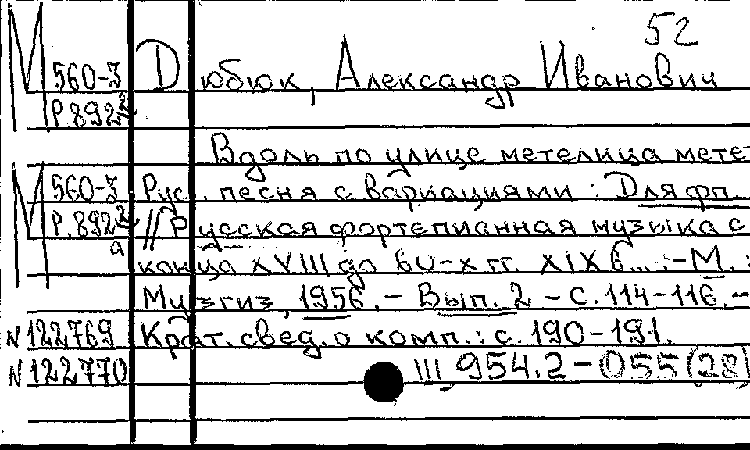 52
М 560-3 Дюбюк, Александр Иванович
Р892
Вдоль по улице метелица мете
М 560-3 Рус. песня с вариациями : Для фп.
Р.892 // Русская фортепианная музыка с
а
конца XVIII до 60-х гг. XIX в...:-М.:
Музгиз, 1956.- Вып. 2 - С. 114-116.-
N 122769 Крат. свед. о комп.: с. 190-191.
N 122770 III 954.2-055(28)